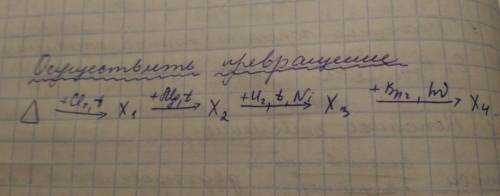 Осуществить превращение
△ +Cl₂, t → X₁ +Mg, t → X₂ +H₂, t, Ni → X₃ +Br₂, hν → X₄.